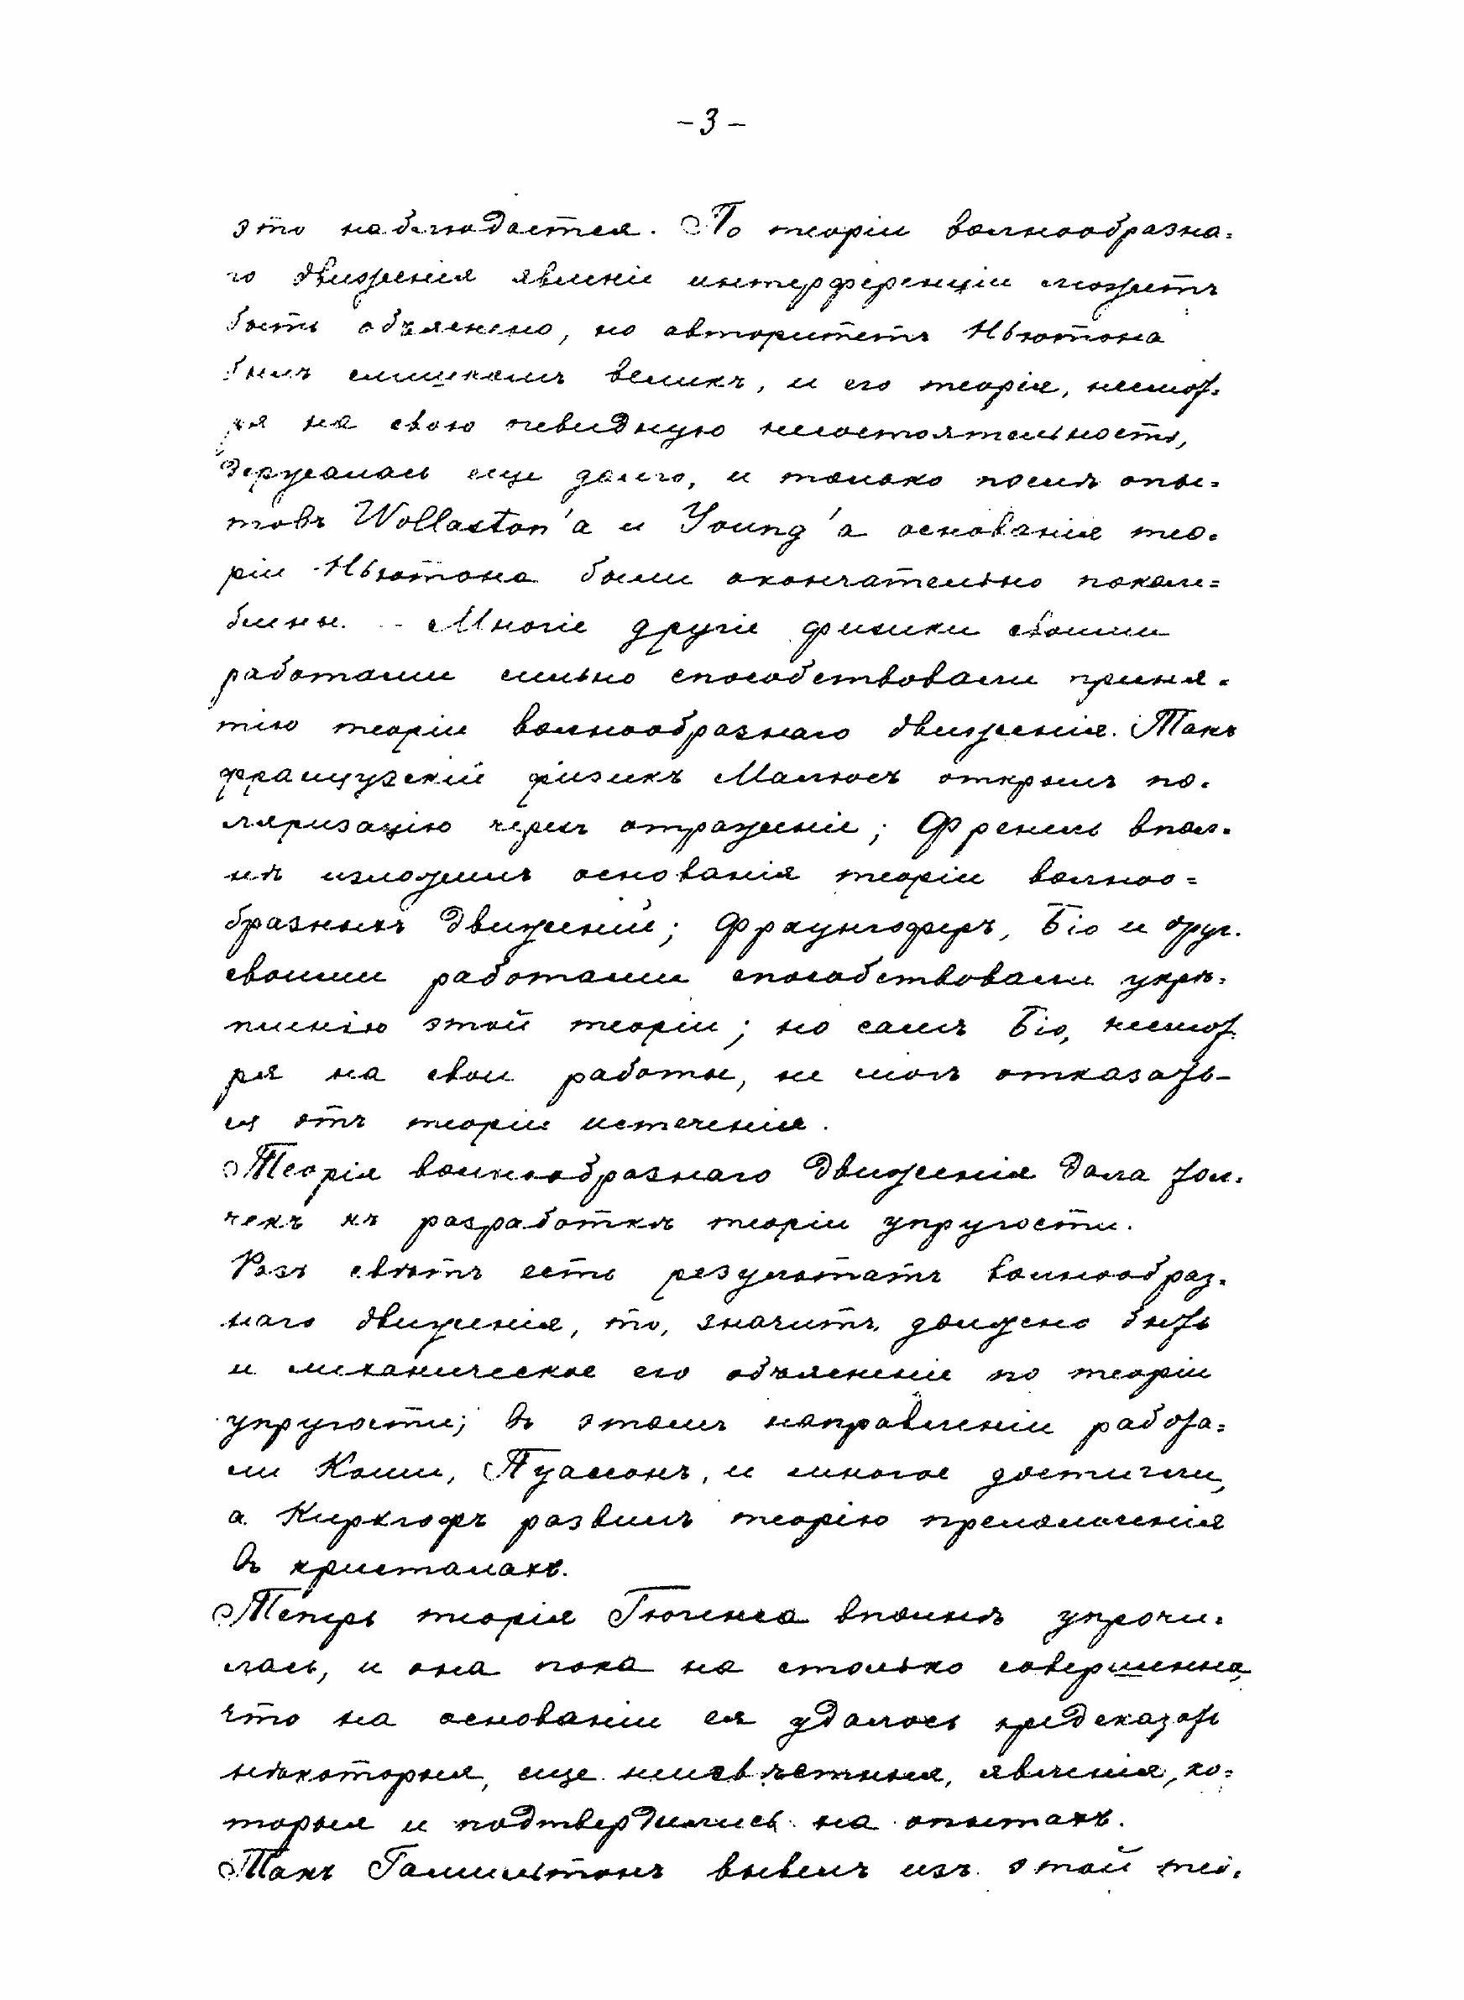 -3-
это наблюдается. По теоріи волнообразна-
го движенія явленіе интерференціи можетъ
быть объяснено, но авторитетъ Ньютона
былъ слишкомъ великъ, и его теорія, несмот-
ря на свою очевидную несостоятельность,
держалась еще долго, и только послѣ опы-
товъ Wollaston'а и Young'а основанія тео-
ріи Ньютона были окончательно поколе=
блены. - Многіе другіе физики своими
работами сильно способствовали приня-
тію теоріи волнообразнаго движенія. Такъ
французскій физикъ Малюсъ открылъ по-
ляризацію черезъ отраженіе; Френель впол-
нѣ изложилъ основанія теоріи волноо=
бразныхъ движеній; Фраунгоферъ, Біо и друг.
своими работами способствовали укрѣ-
пленію этой теоріи; но самъ Біо, несмот-
ря на свои работы, не могъ отказать-
ся отъ теоріи истеченія.
Теорія волнообразнаго движенія дала тол-
чекъ къ разработкѣ теоріи упругости.
Разъ свѣтъ есть результатъ волнообраз-
наго движенія, то, значитъ, должно быть
и механическое его объясненіе по теоріи
упругости; въ этомъ направленіи работа=
ли Коши, Пуассонъ, и многое достигли,
а Киркгофъ развилъ теорію преломленія
въ кристалахъ.
Теперь теорія Гюгенса вполнѣ упрочи-
лась, и она пока на столько совершенна,
что на основаніи ея удалось предсказать
нѣкоторыя, еще неизвѣстныя, явленія, ко=
торыя и подтвердились на опытахъ.
Такъ Гамильтонъ вывелъ изъ этой тео-